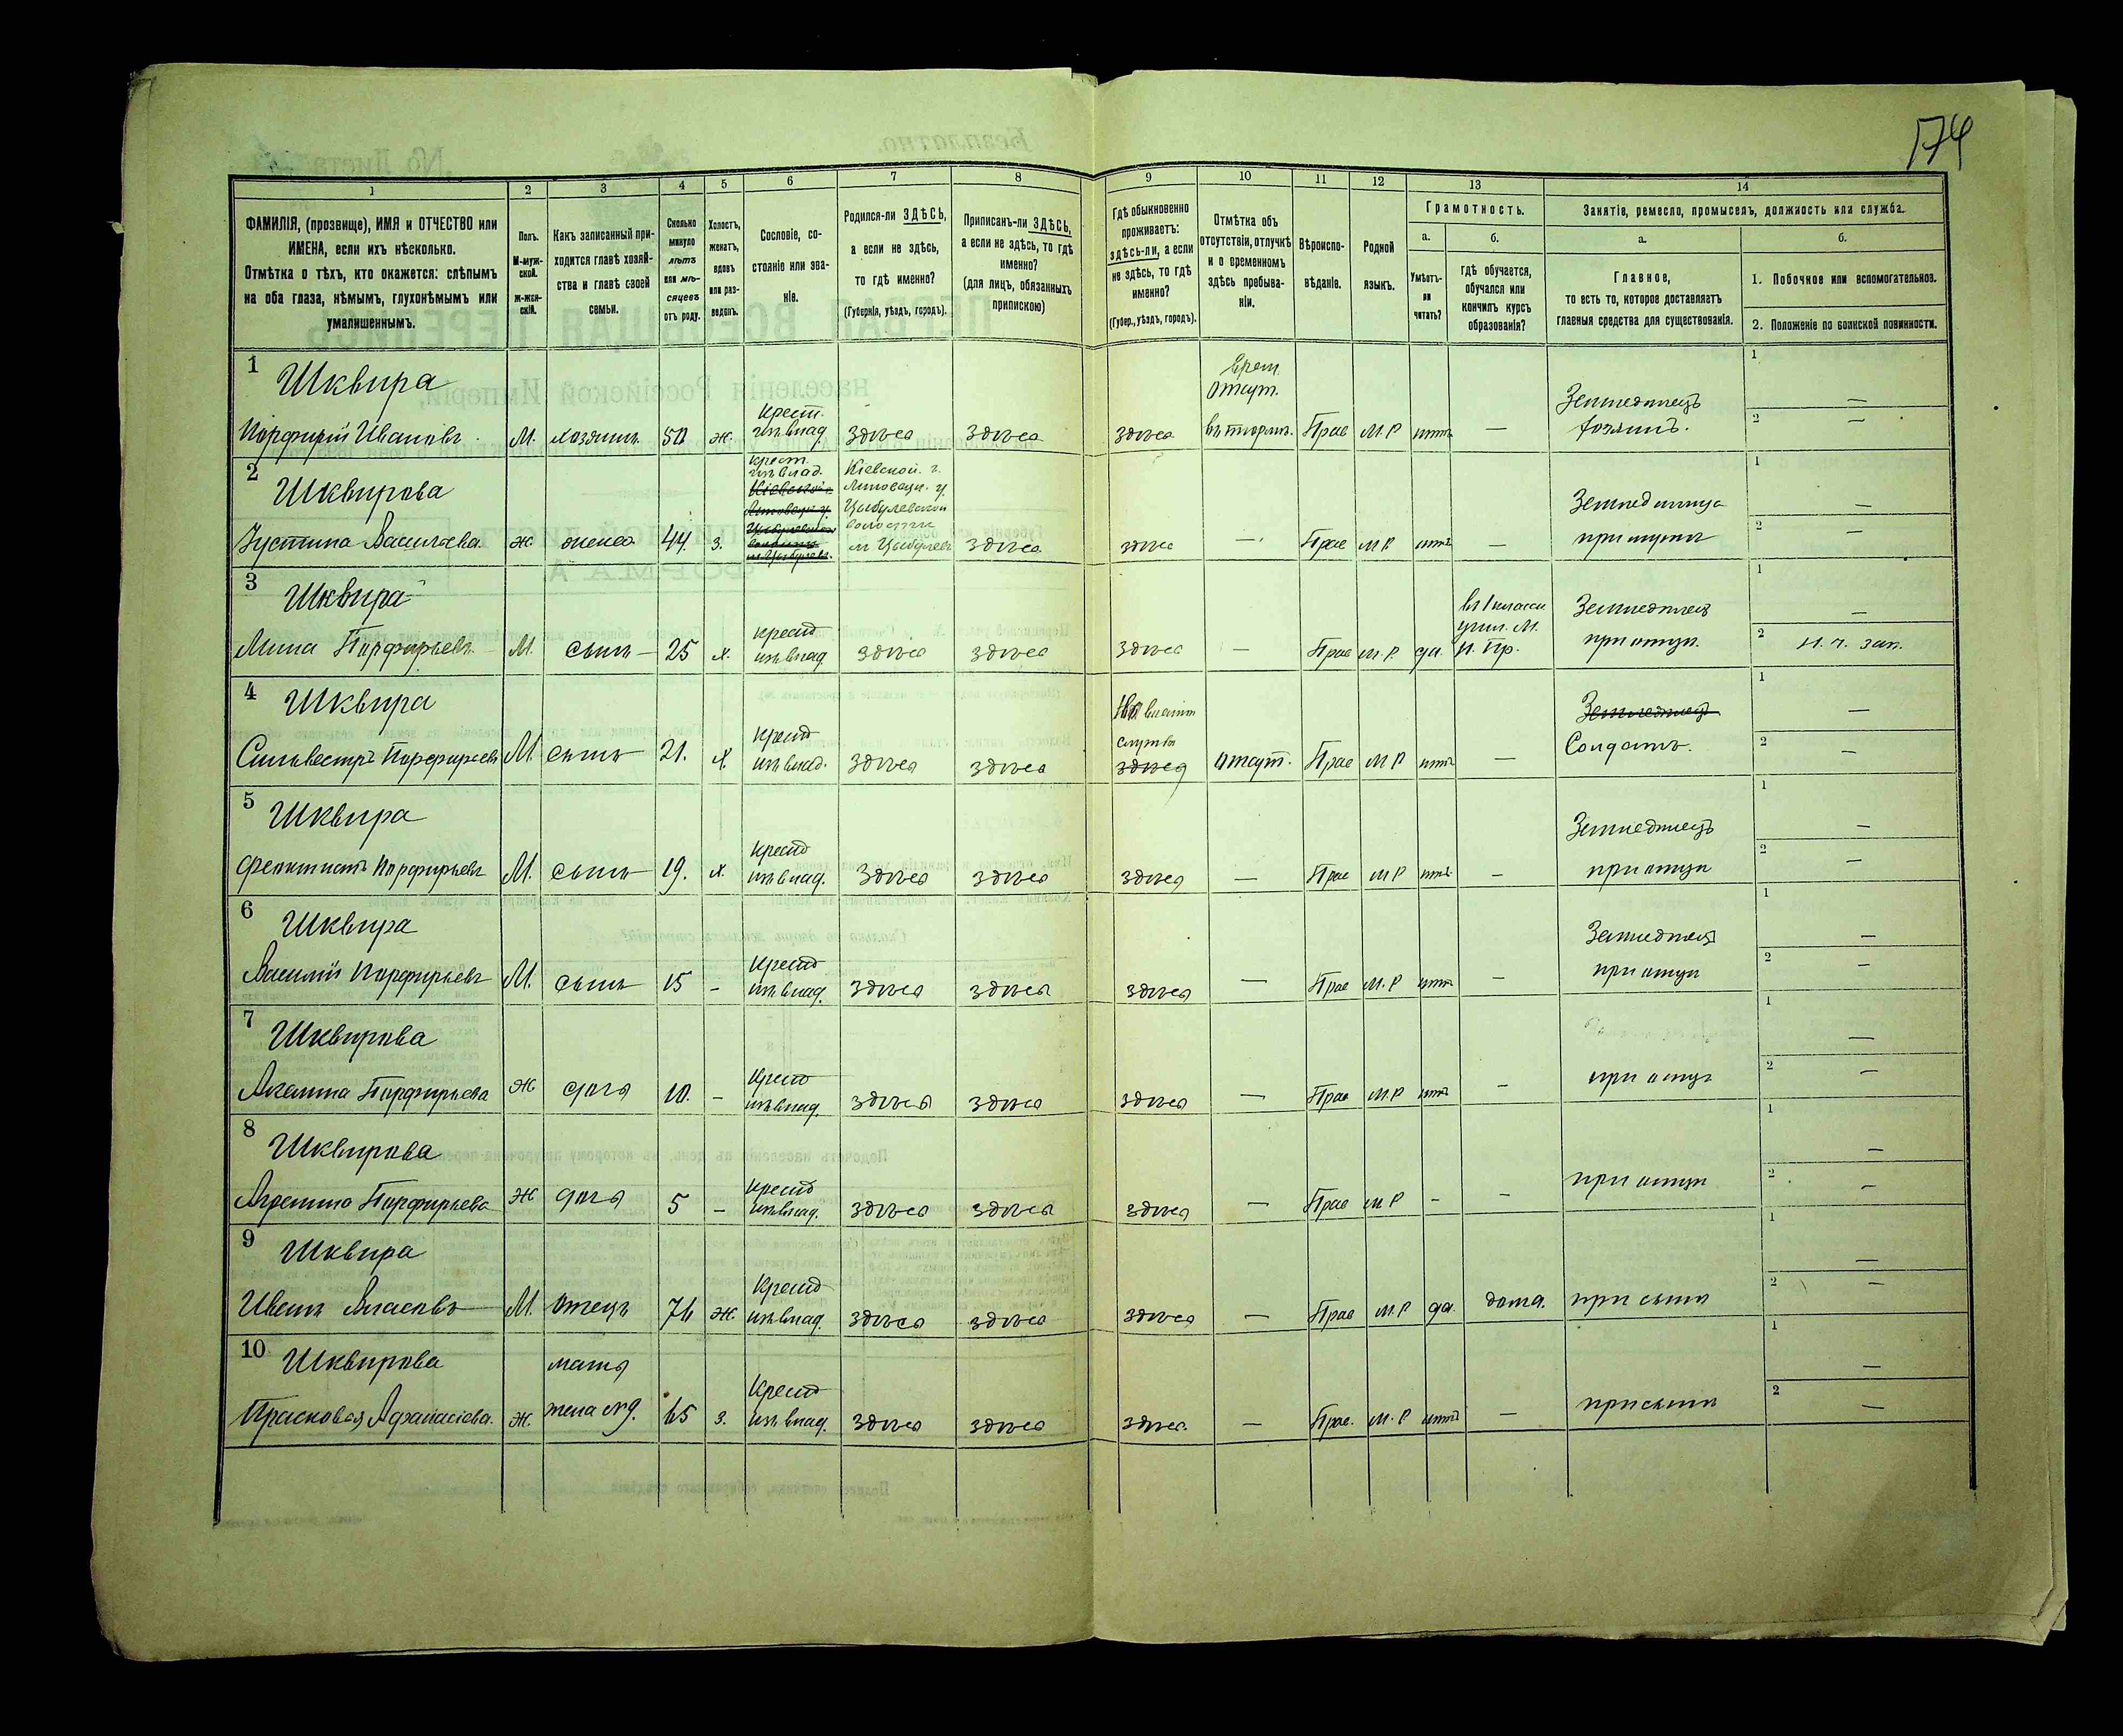 174
1 2 3 4 5 6 7 8 9 10 11 12 13 14
ФАМИЛІЯ, (прозвище), ИМЯ и ОТЧЕСТВО или
ИМЕНА, если ихъ нѣсколько.
Отмѣтка о тѣхъ, кто окажется: слѣпымъ
на оба глаза, нѣмымъ, глухонѣмымъ или
умалишеннымъ.
Полъ.
М-муж-
ской.
ж-жен-
скій.
Какъ записанный при-
ходится главѣ хозяй-
ства и главѣ своей
семьи.
Сколько
минуло
лѣтъ
или мѣ-
сяцевъ
отъ роду.
Холостъ,
женатъ,
вдовъ
или раз-
веденъ.
Сословіе, со-
стояніе или зва-
ніе.
Родился-ли ЗДѢСЬ,
а если не здѣсь,
то гдѣ именно?
(Губернія, уѣздъ, городъ).
Приписанъ-ли ЗДѢСЬ,
а если не здѣсь, то гдѣ
именно?
(для лицъ, обязанныхъ
припискою)
Гдѣ обыкновенно
проживаетъ:
здѣсь-ли, а если
не здѣсь, то гдѣ
именно?
(Губер., уѣздъ, городъ).
Отмѣтка объ
отсутствіи, отлучкѣ
и о временномъ
здѣсь пребыва-
ніи.
Вѣроиспо-
вѣданіе.
Родной
языкъ.
Грамотность.
а.
Умѣетъ-
ли
читать?
б.
Гдѣ обучается,
обучался или
кончилъ курсъ
образованія?
Занятіе, ремесло, промыселъ, должность или служба.
а.
Главное,
то есть то, которое доставляетъ
главныя средства для существованія.
б.
1. Побочное или вспомогательное.
2. Положеніе по воинской повинности.
1 Шквира
Порфирій Ивановъ. М. хозяинъ 50 ж. крест. изъ влад. здѣсь здѣсь здѣсь врем. отсут. въ тюрьм. Прав М.Р нѣтъ — Земледѣлецъ хозяинъ. 1 — 2 —
2 Шквирова
Устина Васильева. ж жена 44 з. крест. изъ влад. Кіевской г. Липовецк. у. Цыбулевской волости м Цыбулевъ здѣсь здѣсь — Прав М Р нѣтъ — Земледѣлица при мужѣ 1 — 2 —
3 Шквира
Мина Порфирьевъ М. сынъ 25 х. крест изъ влад здѣсь здѣсь здѣсь — Прав М.Р. да. въ 1 класс. учил. М. Н. Пр. Земледѣлецъ при отцѣ. 1 — 2 н. ч. зап.
4 Шквира
Сильвестръ Порфирьевъ М. сынъ 21. х. крест изъ влад. здѣсь здѣсь службѣ здѣсь отсут. Прав М Р нѣтъ — Земледѣлецъ Солдатъ. 1 — 2 —
5 Шквира
Феоктистъ Порфирьевъ М. сынъ 19. х. крест изъ влад. здѣсь здѣсь здѣсь — Прав М Р нѣтъ — Земледѣлецъ при отцѣ 1 — 2 —
6 Шквира
Василій Порфирьевъ М. сынъ 15 - крест изъ влад. здѣсь здѣсь здѣсь — Прав М.Р нѣтъ — Земледѣлецъ при отцѣ 1 — 2 —
7 Шквирова
Акелина Порфирьева ж дочь 10. - крест изъ влад. здѣсь здѣсь здѣсь — Прав М.Р нѣтъ — при отцѣ 1 — 2 —
8 Шквирова
Порфирьева ж дочь 5 - крест изъ влад. здѣсь здѣсь здѣсь — Прав М Р - - при отцѣ 1 — 2 —
9 Шквира
Иванъ Власовъ М. отецъ 74 ж. крест изъ влад. здѣсь здѣсь здѣсь — Прав М.Р да. дома. при сынѣ 1 — 2 —
10 Шквирова
Прасковья Афанасіева. ж. мать 65 з. крест изъ влад. здѣсь здѣсь здѣсь. — Прав. М.Р нѣтъ — при сынѣ 1 — 2 —